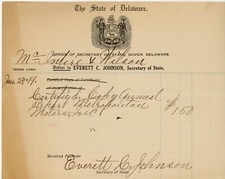 The State of Delaware.
OFFICE OF SECRETARY OF STATE, DOVER, DELAWARE
& Wilson
Debtor to EVERETT C. JOHNSON, Secretary of State.
TERMS CASH
Certified Copy Annual
Report Metropolitan
Motors Inc
$1.50
Received Payment
Everett C. Johnson
Secretary of State.